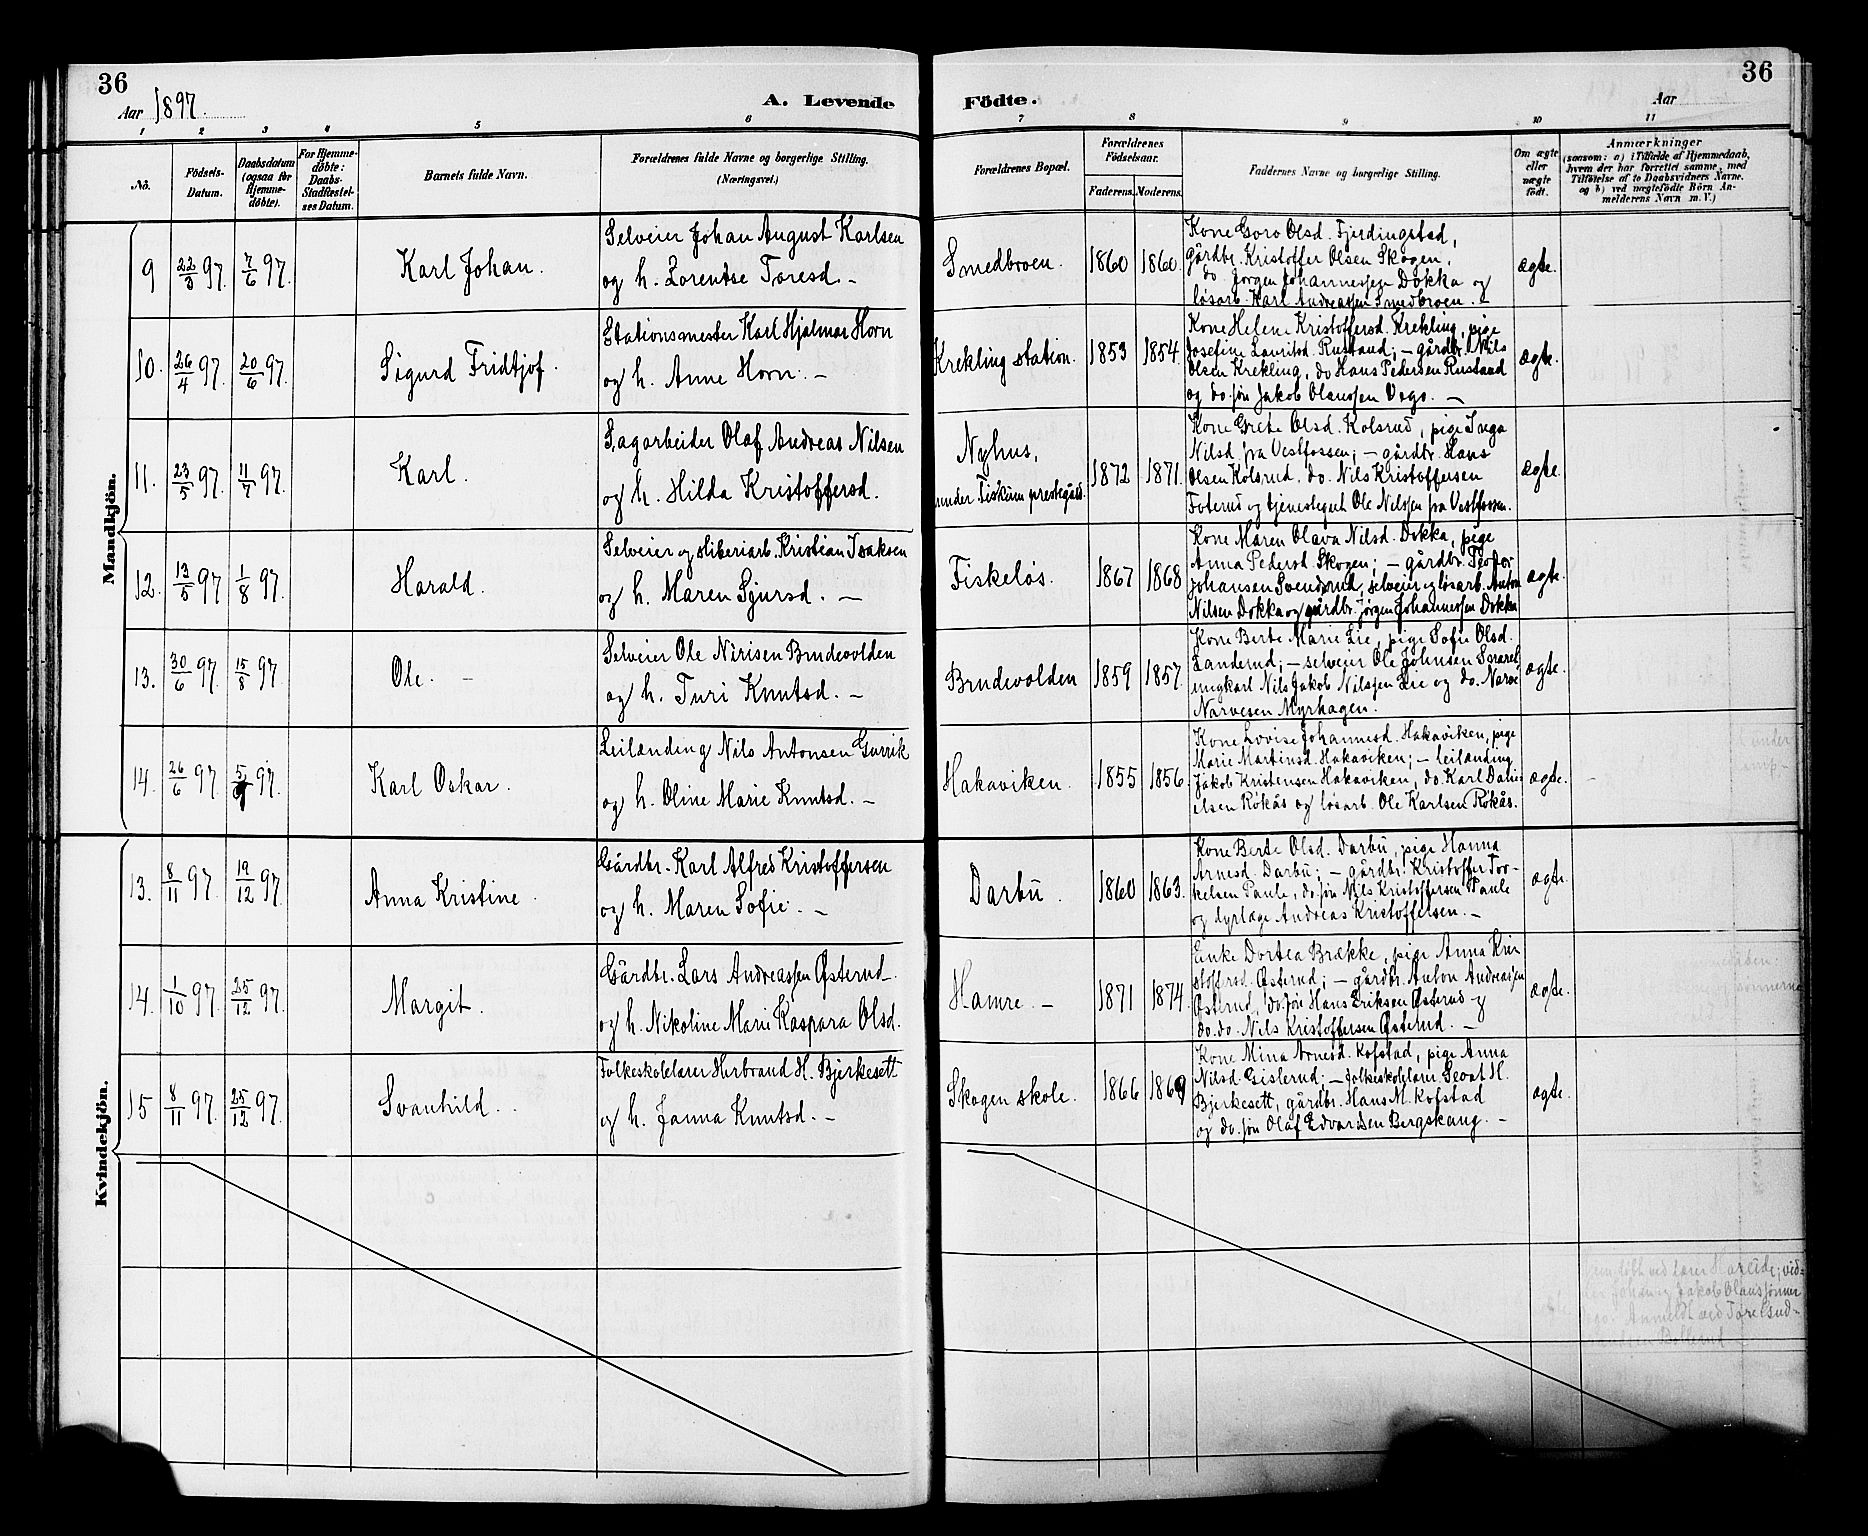 36
Aar 1897.
A. Levende
1 2 3 4 5 6
No.
Födsels-
Datum.
Daabsdatum
(ogsaa for
Hjemme-
döbte).
For Hjemme-
döbte:
Daabs-
Stadfæstel-
ses Datum.
Barnets fulde Navn.
Forældrenes fulde Navne og borgerlige Stilling.
(Næringsvei.)
Mandkjön.
9 22/3 97. 7/6 97. Karl Johan.
Selveier Johan August Karlsen
og h. Lorentse Toresd. –
10. 26/4 97. 20/6 97. Sigurd Fridtjof.
Stationsmester Karl Hjalmar Horn
og h. Anne Horn. –
11. 23/5 97. 11/7 97. Karl.
Sagarbeider Olaf Andreas Nilsen
og h. Hilda Kristoffersd.
12. 13/5 97 1/8 97. Harald.
Selveier og sliberiarb. Kristian Isaksen
og h. Maren Sjursd. –
13. 30/6 97. 15/8 97. Ole. –
Selveier Ole Nirisen Brudevolden
og h. Turi Knutsd. –
14. 26/6 97 97. Karl Oskar.
Leilænding Nils Antonsen
og h. Oline Marie Knutsd. –
Kvindekjön.
13. 8/11 97. 19/12 97. Anna Kristine.
Gårdbr. Karl Alfred Kristoffersen
og h. Maren Sofie. –
14. 1/10 97. 25/12 97. Margit.
Gårdbr. Lars Andreassen Østerud
og h. Nikoline Marie Kaspara Olsd.
15 8/11 97. 25/12 97. Svanhild.
Folkeskolelærer Herbrand H. Bjerkesett
og h. Janna Knutsd. –
36
Födte.
Aar
7 8 9 10 11
Forældrenes Bopæl.
Forældrenes
Födselsaar.
Faderens. Moderens.
Faddernes Navne og borgerlige Stilling.
Om ægte
eller
uægte
födt.
Anmærkninger
(saasom: a) i Tilfælde af Hjemmedaab,
hvem der har forrettet samme, med
Tilföielse af to Daabsvidners Navne,
og b) ved uægtefödte Börn An-
melderens Navn m. V.)
Smedbroen. 1860 1860. ægte.
Kone Goro Olsd. Fjerdingstad,
gårdbr. Kristoffer Olsen Skogen,
do Jørgen Johannessen Dokka og
løsarb. Karl Andreassen Smedbroen. –
Krekling station. 1853 1854. ægte.
Kone Helene Kristoffersd. Krekling, pige
Josefine Lauritsd. Rustand; – gårdbr. Nils
Olsen Krekling, do Hans Pedersen Rustand
og do. søn Jakob Olaussen Dogo. –
Nyhus,
under Fiskum prestegård. 1872 1871. ægte.
Kone Grete Olsd. Kolsrud, pige Inga
Nilsd. fra Vestfossen; – gårdbr. Hans
Olsen Kolsrud, do. Nils Kristoffersen
Foterud og tjenestegut Ole Nilssen fra Vestfossen.
Fiskeløs. 1867 1868 ægte.
Kone Maren Olava Nilsd. Dokka, pige
Anna Pedersd. Skogen; – gårdbr.
Johansen Svendsrud, selveier og løsarb. Anton
Nilsen Dokka og gårdbr. Jørgen Johannessen Dokka
Brudevolden 1859 1857. ægte.
Kone Berte Marie Lie, pige Sofie Olsd.
Landerud; – selveier Ole Johnsen
ungkarl Nils Jakob Nilssen Lie og do. Narve
Narvesen Myrhagen.
Hakaviken. 1855 1856. ægte.
Kone Lovise Johannesd. Hakaviken, pige
Marie Martinsd. Hakaviken; – leilænding
Jakob Kristensen Hakaviken, do. Karl Dani-
elsen Røkås og løsarb. Ole Karlsen Røkås.
Darbu. 1860 1863. ægte.
Kone Berte Olsd. Darbu, pige Hanna
Arnesd. Darbu; – gårdbr. Kristoffer Tor-
kelsen Paule, do. søn Nils Kristoffersen Paule
og dyrlæge Andreas Kristoffersen. –
Hamre. – 1871 1874. ægte.
Enke Dortea Brække, pige Anna Kri-
stoffersd. Østerud; – gårdbr. Anton Andreassen
Østerud, do. søn Hans Eriksen Østerud og
do. do. Nils Kristoffersen Østerud. –
Skogen skole. 1866 1869 ægte.
Kone Mina Arnesd. Kofstad, pige Anna
Nilsd. Gislerud; – folkeskolelærer H.
Bjerkesett, gårdbr. Hans M. Kofstad
og do. søn Olaf Edvardsen Bergskaug. –